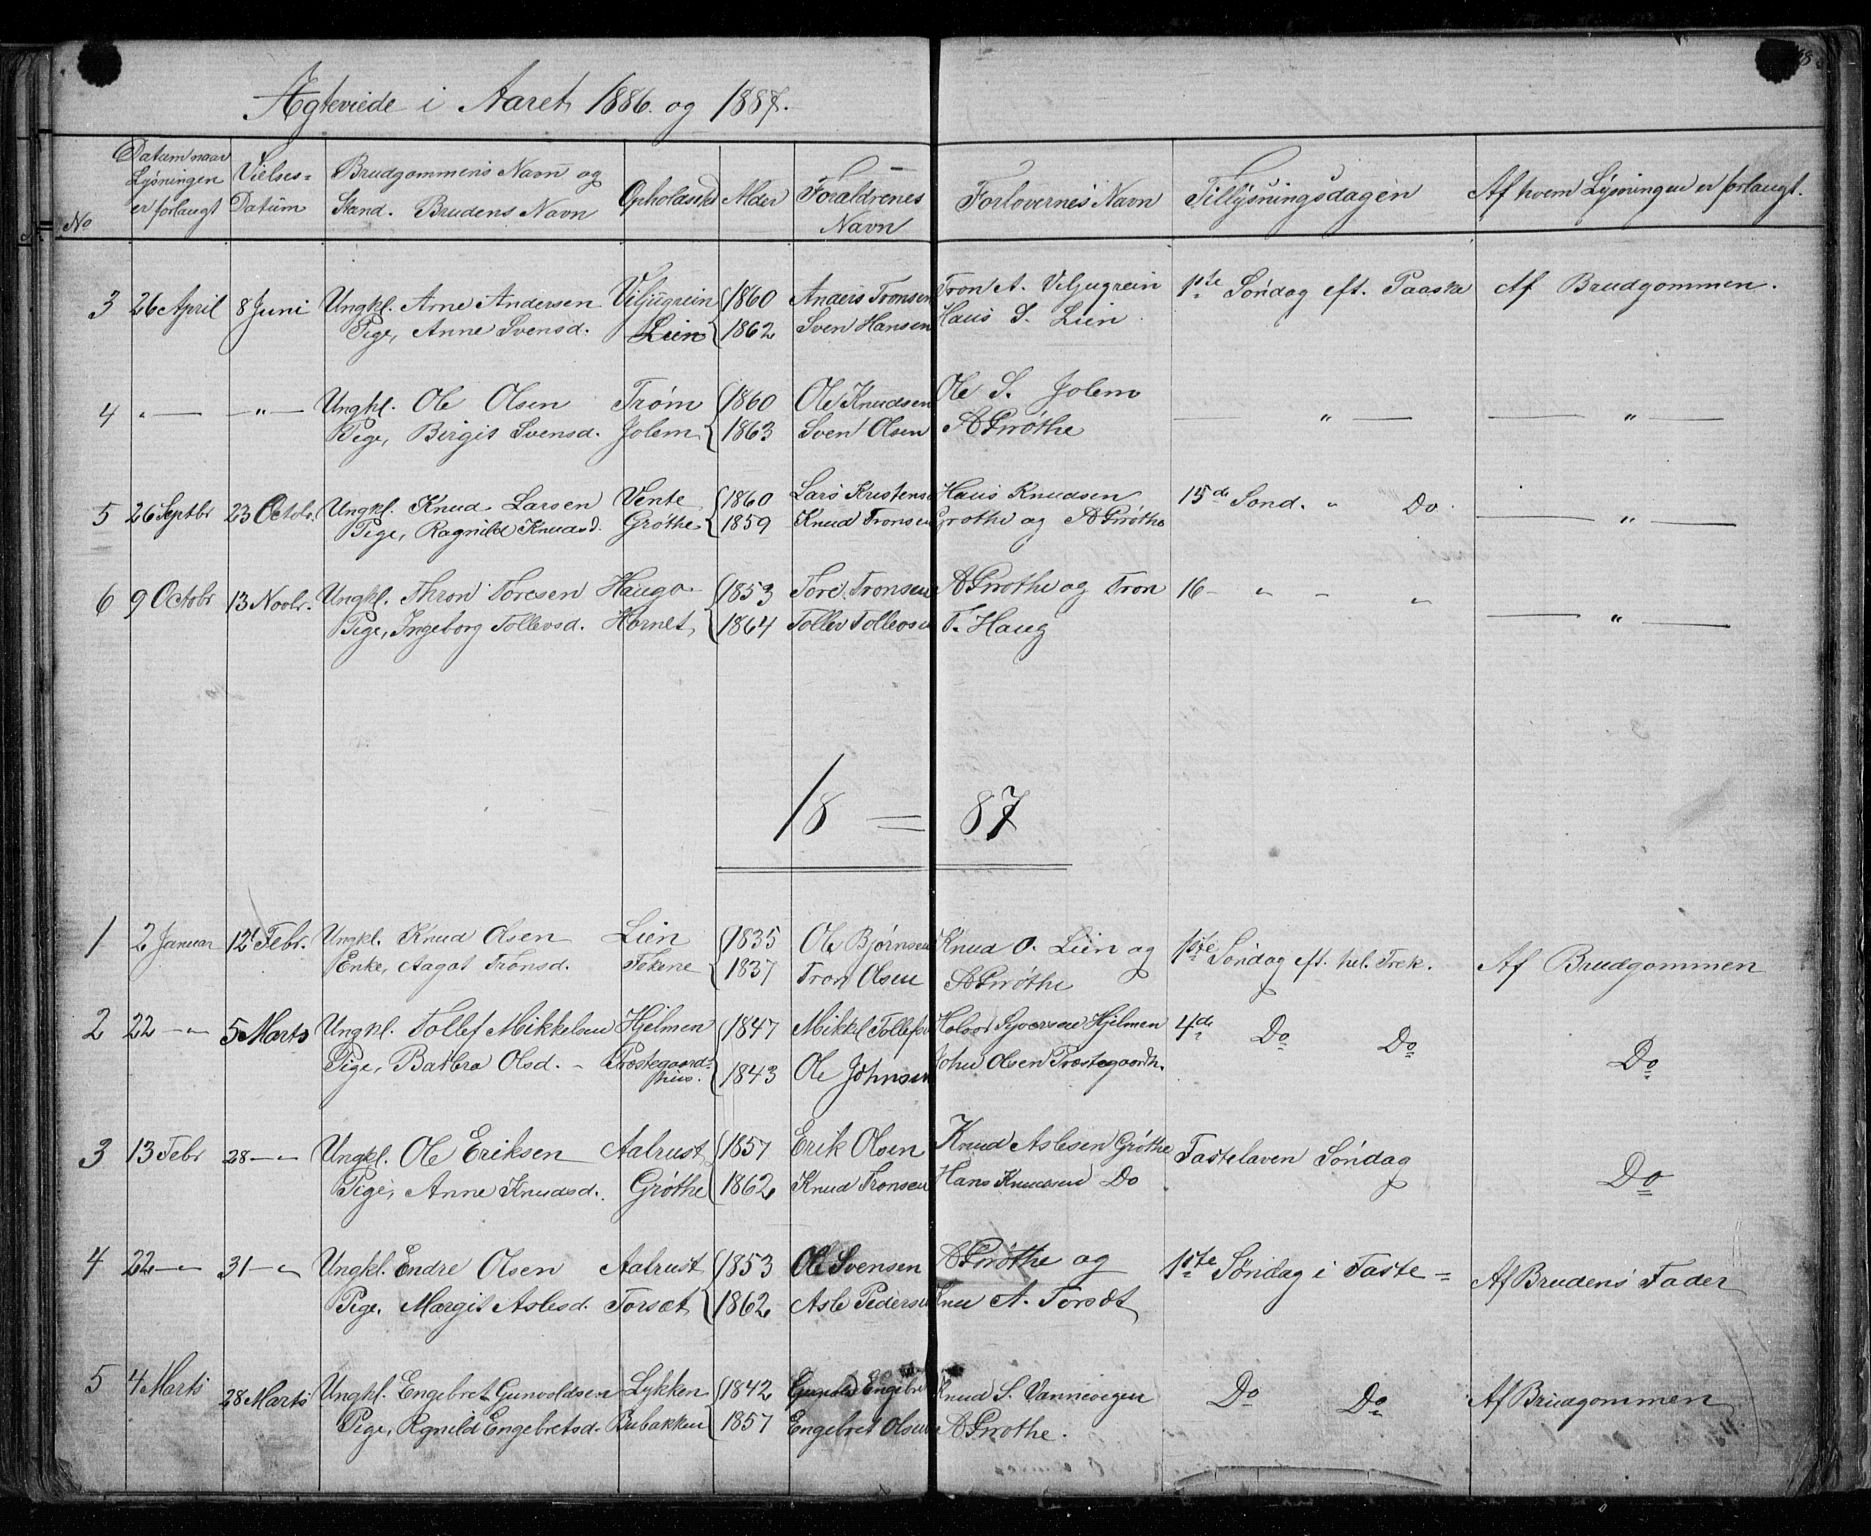 Ægteviede i Aaret 1886. og 1887.
No | Datum naar Lysningen er forlangt | Vielses= Datum | Brudgommens Navn og Stand. Brudens Navn | Opholdssted | Alder | Forældrenes Navn | Forlovernes Navn | Tillysningsdagen | Af hvem Lysningen er forlangt.
3 | 26 April | 8 Juni | Ungkl. Arne Andersen | Viljugrein | 1860 | Anders Tronsen | Tron A. Viljugrein | 1ste Søndag eft. Paaske | Af Brudgommen.
Pige, Anne Svensd. | Lien | 1862 | Sven Hansen | Hans S. Lien
4 | " | " | Ungkl. Ole Olsen | Trøm | 1860 | Ole Knudsen | Ole S. Jolem | " | "
Pige, Birgit Svensd. | Jolem | 1863 | Sven Olsen | A Grøthe
5 | 26 Septbr | 23 Octobr. | Ungkl. Knud Larsen | Vente | 1860 | Lars Kristens | Hans Knudsen | 15de Sønd. " Do. | "
Pige, Ragnild Knudsd. | Grøthe | 1859 | Knud Tronsen | Grøthe og A Grøthe
6 | 9 Octobr | 13 Novbr. | Ungkl. Thron Toresen | Haugo | 1853 | Tore Tronsen | A Grøthe og Tron | 16 - " - " | "
Pige, Ingeborg Tollevsd. | Hornet | 1864 | Tollev Tollevsen | T. Haug
18 = 87
1 | 2 Januar | 12 Febr. | Ungkl. Knud Olsen | Lien | 1835 | Ole Bjørnsen | Knud O. Lien og | 1ste Søndag eft. hel. Trek. | Af Brudgommen
Enke, Aagot Tronsd. | Tekene | 1837 | Tron Olsen | A Grøthe
2 | 22 — " | 5 Marts | Ungkl. Tollef Mikkelsen | Hjelmen | 1847 | Mikkel Tollefs | Holvor Hjelmen | 4de Do Do | Do
Pige, Barbro Olsd. - | Præstegaard= hus. | 1843 | Ole Johnsen | John Olsen Præstegaardh.
3 | 13 Febr | 28 — " | Ungkl. Ole Eriksen | Aalrust | 1857 | Erik Olsen | Knud Aslesen Grøthe | Fastelaven Søndag | Do
Pige, Anne Knudsd. | Grøthe | 1862 | Knud Tronsen | Hans Knudsen Do
4 | 22 — " | 31 — " | Ungkl. Endre Olsen | Aalrust | 1853 | Ole Svensen | A Grøthe og | 1ste Søndag i Faste = | Af Brudens Fader
Pige, Margit Aslesd. | Torsæt | 1862 | Asle Pedersen | Knu A. Torsæt
5 | 4 Marts | 28 Marts | Ungkl. Engebret Gunvoldsen | Lykken | 1842 | Engebret | Knud S. Vannevegen | Do Do | Af Brudgommen
Pige, Rgnild Engebretsd. | Bubakken | 1857 | Engebret Olsen | A Grøthe.